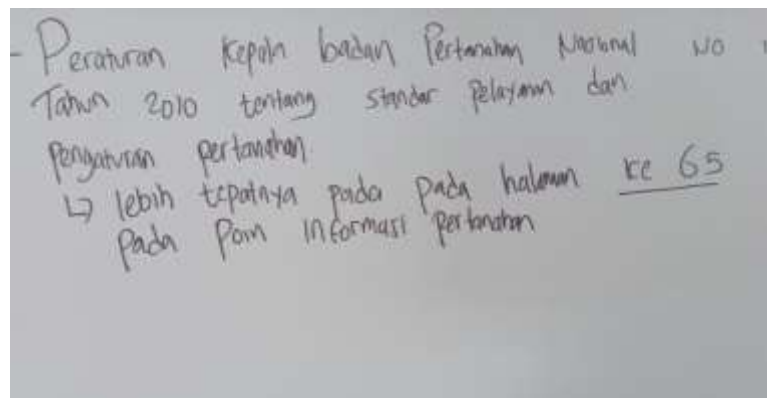 - Peraturan Kepala badan Pertanahan Nasional NO
Tahun 2010 tentang standar Pelayanan dan
Pengaturan pertanahan
↳ lebih tepatnya pada pada halaman ke 65
pada Poin informasi pertanahan